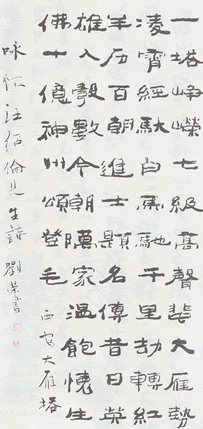 一塔崢嶸七級高聲蜚大雁勢
凌霄經馱白馬馳千里劫轉紅
羊历百朝進士題名傳昔日英
雄入彀數今朝家溫飽懷生
佛十億神州頌登毛 西安大雁塔
咏怀汪先生詩 劉書